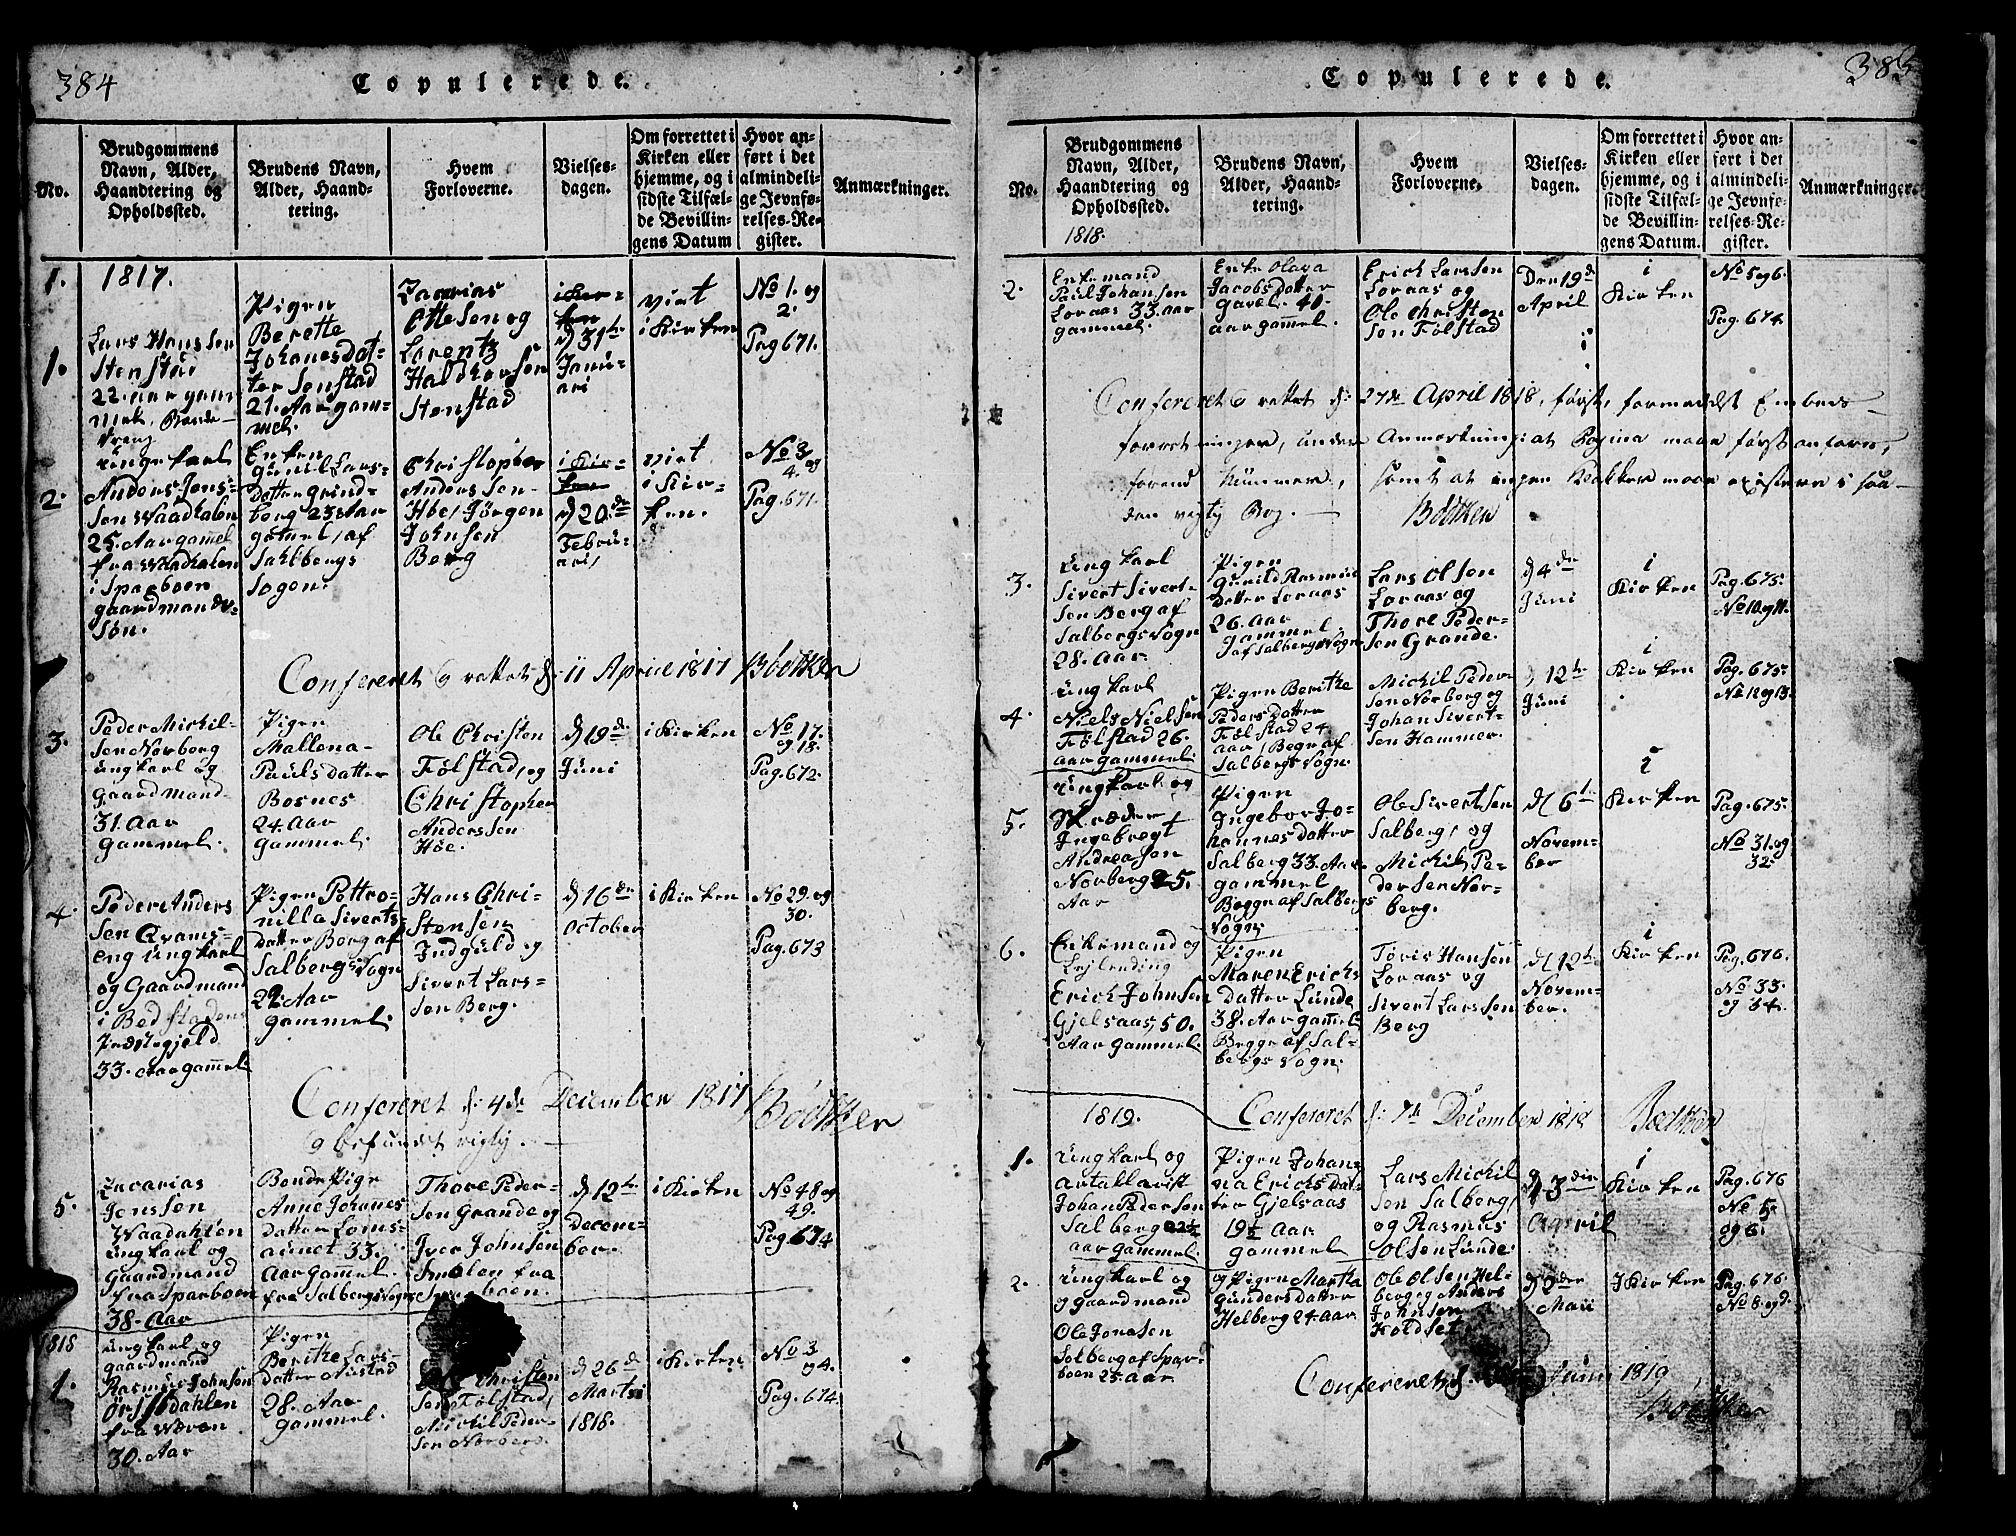 384
Copulerede.
No.
Brudgommens
Navn, Alder,
Haandtering og
Opholdssted.
Brudens Navn,
Alder, Haand-
tering.
Hvem
Forloverne.
Vielses-
dagen.
Om forrettet i
Kirken eller
hjemme, og i
sidste Tilfæl-
de Bevillin-
gens Datum
Hvor an-
ført i det
almindeli-
ge Jevnfø-
relses-Re-
gister.
Anmærkninger.
1.
1817.
1.
Lars Hanssen
Stenstad
22. aar gam
mel. Bonde-
dreng
Pigen
Berette
Johanesdat-
ter Sonstad
21. Aar gam-
mel.
Zacarias
Ottesen og
Lorentz
Haldhorsen
Stenstad
i Kir-
ken
d 31te
Janu-
ari
viet
i Kirken
No 1. og
2.
Pag 671.
2.
ungekarl
Anders Jens-
sen Waadhalen
25. Aar gamel
fra Waadhalen
i Sparboen
gaardmands-
søn.
Enken
Guniil Lars-
datter Grind-
berg 23 Aar
gamel, af
Sahlbergs
Sogen.
Christopher
Anderssen
Høe, Jørgen
Johnsen
Berg
i Kir-
ken
d 20de
Febru-
ari,
viet
i Kir-
ken.
No 3
4. og
Pag 671.
Confereret & rettet d: 11 April 1817 Bödtker
3.
Peder Michil-
sen Norberg
ungkarl og
gaardmand
31. Aar
gammel.
Pigen
Mallena
Paulsdatter
Bosnes
24. Aar
gammel.
Ole Christen
Følstad, og
Christopher
Anderssen
Høe.
d 19de
Juni
i Kirken
No 17.
og 18.
Pag. 672.
4.
Peder Anders
sen Qvams-
eng ungkarl
og Gaardmand
i Bedstadens
Præstegjeld
33. Aar gammel
Pigen Pettro-
nilla Siverts-
datter Berg af
Salbergs Sogn
22. Aar
gammel.
Hans Chri-
stensen
Indguld og
Sivert Lars-
sen Berg.
d 16de
October
i Kirken
No 29. og
30.
Pag. 673
Confereret d: 4de December 1817 Bödtker
og befundet rigtig.
5.
Zacarias
Jonssen
Waadahlen
ungkarl og
gaardmand
fra Sparboen
38. Aar
Bonde Pige
Anne Johanes
datter Loms-
aunet 33.
Aar gammel.
fra Salbergs Sogn
Thore Peder-
sen Grande og
Iver Johnsen
Smolen fra
Sparboen.
d 12te
Decem-
ber.
i Kirken
No 48 og
49.
Pag. 674
1818
1.
ungkarl og
gaardmand
Rasmus Johnsen
Ørstdahlen
fra Wæren
30. Aar
Pigen
Berithe Lars-
datter Austad
28. Aar
gammel.
Ole Christen
sen Følstad,
Michil Peder-
sen Norberg.
d 26de
Martsi
1818.
i Kirken
No 3
og 4.
Pag. 674.
385
Copulerede.
No.
Brudgommens
Navn, Alder,
Haandtering og
Opholdssted.
1818.
Brudens Navn,
Alder, Haand-
tering.
Hvem
Forloverne.
Vielses-
dagen.
Om forrettet i
Kirken eller
hjemme, og i
sidste Tilfæl-
de Bevillin-
gens Datum.
Hvor an-
ført i det
almindeli-
ge Jevnfø-
relses-Re-
gister.
Anmærkninger.
2.
Enkemand
Paul Johansen
Loraas 33. aar
gammel.
Enke Olava
Jacobsdatter
Gavel. 40.
aar gammel.
Erich Larssen
Loraas og
Ole Christen
sen Følstad
Den 19de
April
i
Kirken
No 5 og 6.
Pag. 674
Confereret & rettet d: 27de April 1818, først, formeldst Embeds-
forretninger, under Anmærkning: at Pagina maae først anføres,
forend Nummer, samt at ingen Klakker maae existere i saa-
dan vigtig Bog. Bödtker
3.
ungkarl
Sivert Sivert-
sen Berg af
Salbergs Sogn
28. Aar
Pigen
Gurild Rasmus
datter Loraas
26. Aar
gammel
af Salbergs Sogn
Lars Olsen
Loraas og
Thore Peder-
sen Grande.
d 4de
Juni
i
Kirken
Pag. 675.
No 10 og 11.
4.
ungkarl
Niels Nielsen
Følstad 26.
aar gammel.
Pigen Berithe
Pedersdatter
Følstad 24
aar, Begge af
Salbergs Sogn.
Michil Peder-
sen Norberg og
Johan Sivert-
sen Hammer.
d 12te
Juni
i
Kirken
Pag. 675.
No 12 og 13.
5.
ungkarl og
Skræder
Ingebregt
Andreasen
Norberg 25.
Aar
Pigen
Ingebor Jo-
hannesdatter
Salberg 33. Aar
gammel
Begge af Salbergs
Sogn.
Ole Sivertsen
Salberg, og
Michil Pe-
dersen Nor-
berg.
d 6te
Novem-
ber
i
Kirken
Pag. 675.
No 31. og
32.
6.
Enkemand og
Lejlending
Erich Johnsen
Gjelsaas, 50.
Aar gammel.
Pigen
Maren Erichs
datter Lunde
38. Aar gammel
Begge af Sal-
bergs Sogn.
Tøris Hansen
Loraas og
Sivert Larssen
Berg
d 12te
Novem-
ber.
i
Kirken
Pag. 676.
No 33.
og 34.
1819.
Confereret d: 7de December 1818 Bödtker
1.
ungkarl og
Johan Pedersen
Salberg 22½
aar gammel.
Pigen Johan-
na Erichsdat-
ter Gjelsaas
19½ Aar
gammel
Lars Michil
sen Salberg,
og Rasmus
Olsen Lunde.
d 3die
April
i
Kirken
Pag. 676
No 5.
og 6.
2.
ungkarl og
og gaardmand
Ole Jonasen
Solberg af Spar-
boen 25. aar.
og Pigen Martha
Gundersdatter
Helberg 24. aar
Ole Olsen Hel-
berg og Anders
Johnsen
Koldset
d 2den
Maii
I Kirken
Pag. 676.
No 8. og 9.
Confereret d. Juni 1819
Bödtker